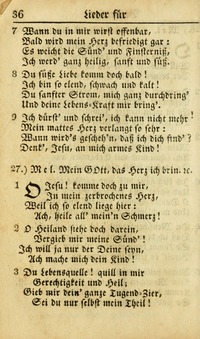 36 Lieder für
7 Wann du in mir wirst offenbar,
Bald wird mein Herz befriedigt gar:
Es weicht die Sünd' und Finsterniß,
Ich werd' ganz heilig, sanft und süß.
8 Du süße Liebe komm doch bald!
Ich bin so elend, schwach und kalt!
Du sanfter Strom, mich ganz durchdring'
Und deine Lebens-Kraft mir bring'.
9 Ich dürst' und schrei', ich kann nicht mehr
Mein mattes Herz verlangt so sehr:
Wann wird's gescheh'n, daß ich dich find'?
Denk', Jesu, an mich armes Kind!
27.) Mel. Mein GOtt, das Herz ich brin. ec.
1 O Jesu! komme doch zu mir,
In mein zerbrochenes Herz,
Weil ich so elend liege hier:
Ach, heile all' mein'n Schmerz!
2 O Heiland stehe doch darein,
Vergib mir meine Sünd'!
Ich will ja nur der Deine seyn,
Ach mache mich dein Kind!
3 Du Lebensquelle! quill in mir
Gerechtigkeit und Heil;
Gib mir dein' ganze Tugend-Zier,
Sei du nur selbst mein Theil!